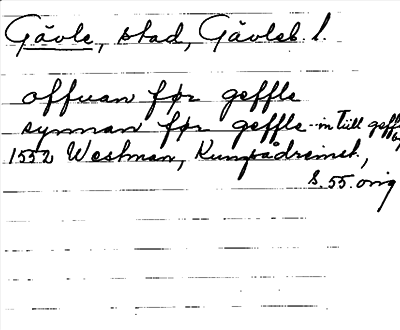 Gävle, stad, Gävleb. l.
offuan før geffle
synnan før geffle - in till geffle
1552 Westman, Kungsådreinst.,
S. 55. orig